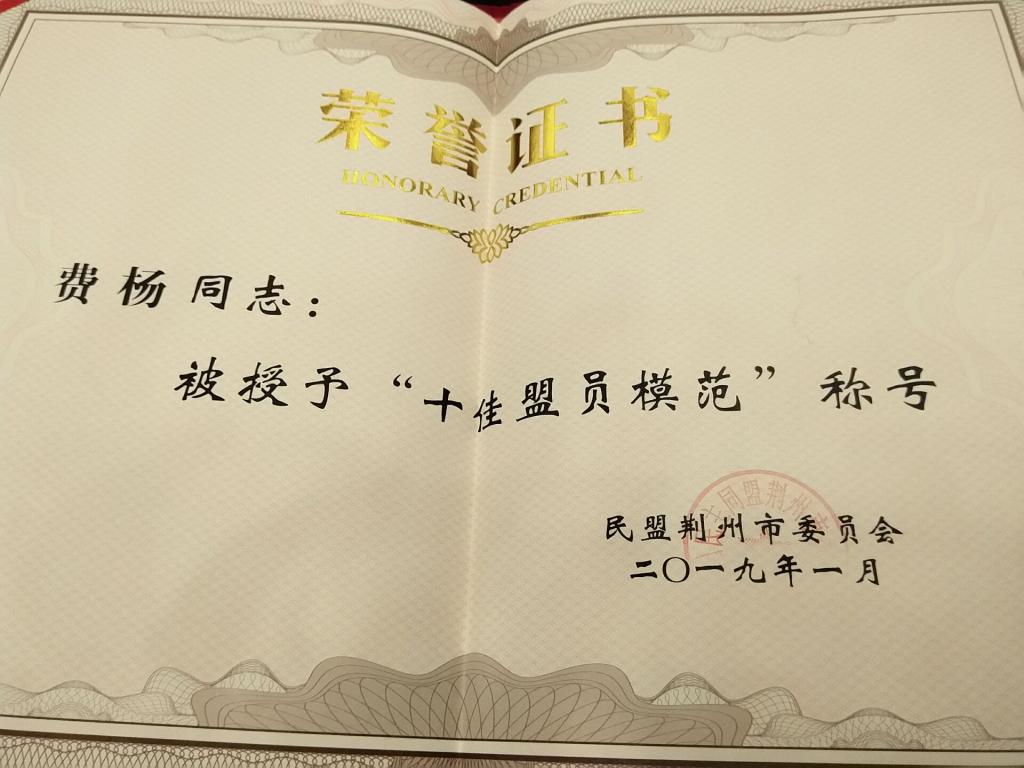 荣誉证书
HONORARY CREDENTIAL
费杨同志：
被授予“十佳盟员模范”称号
民盟荆州市委员会
二〇一九年一月
主同盟荆州市